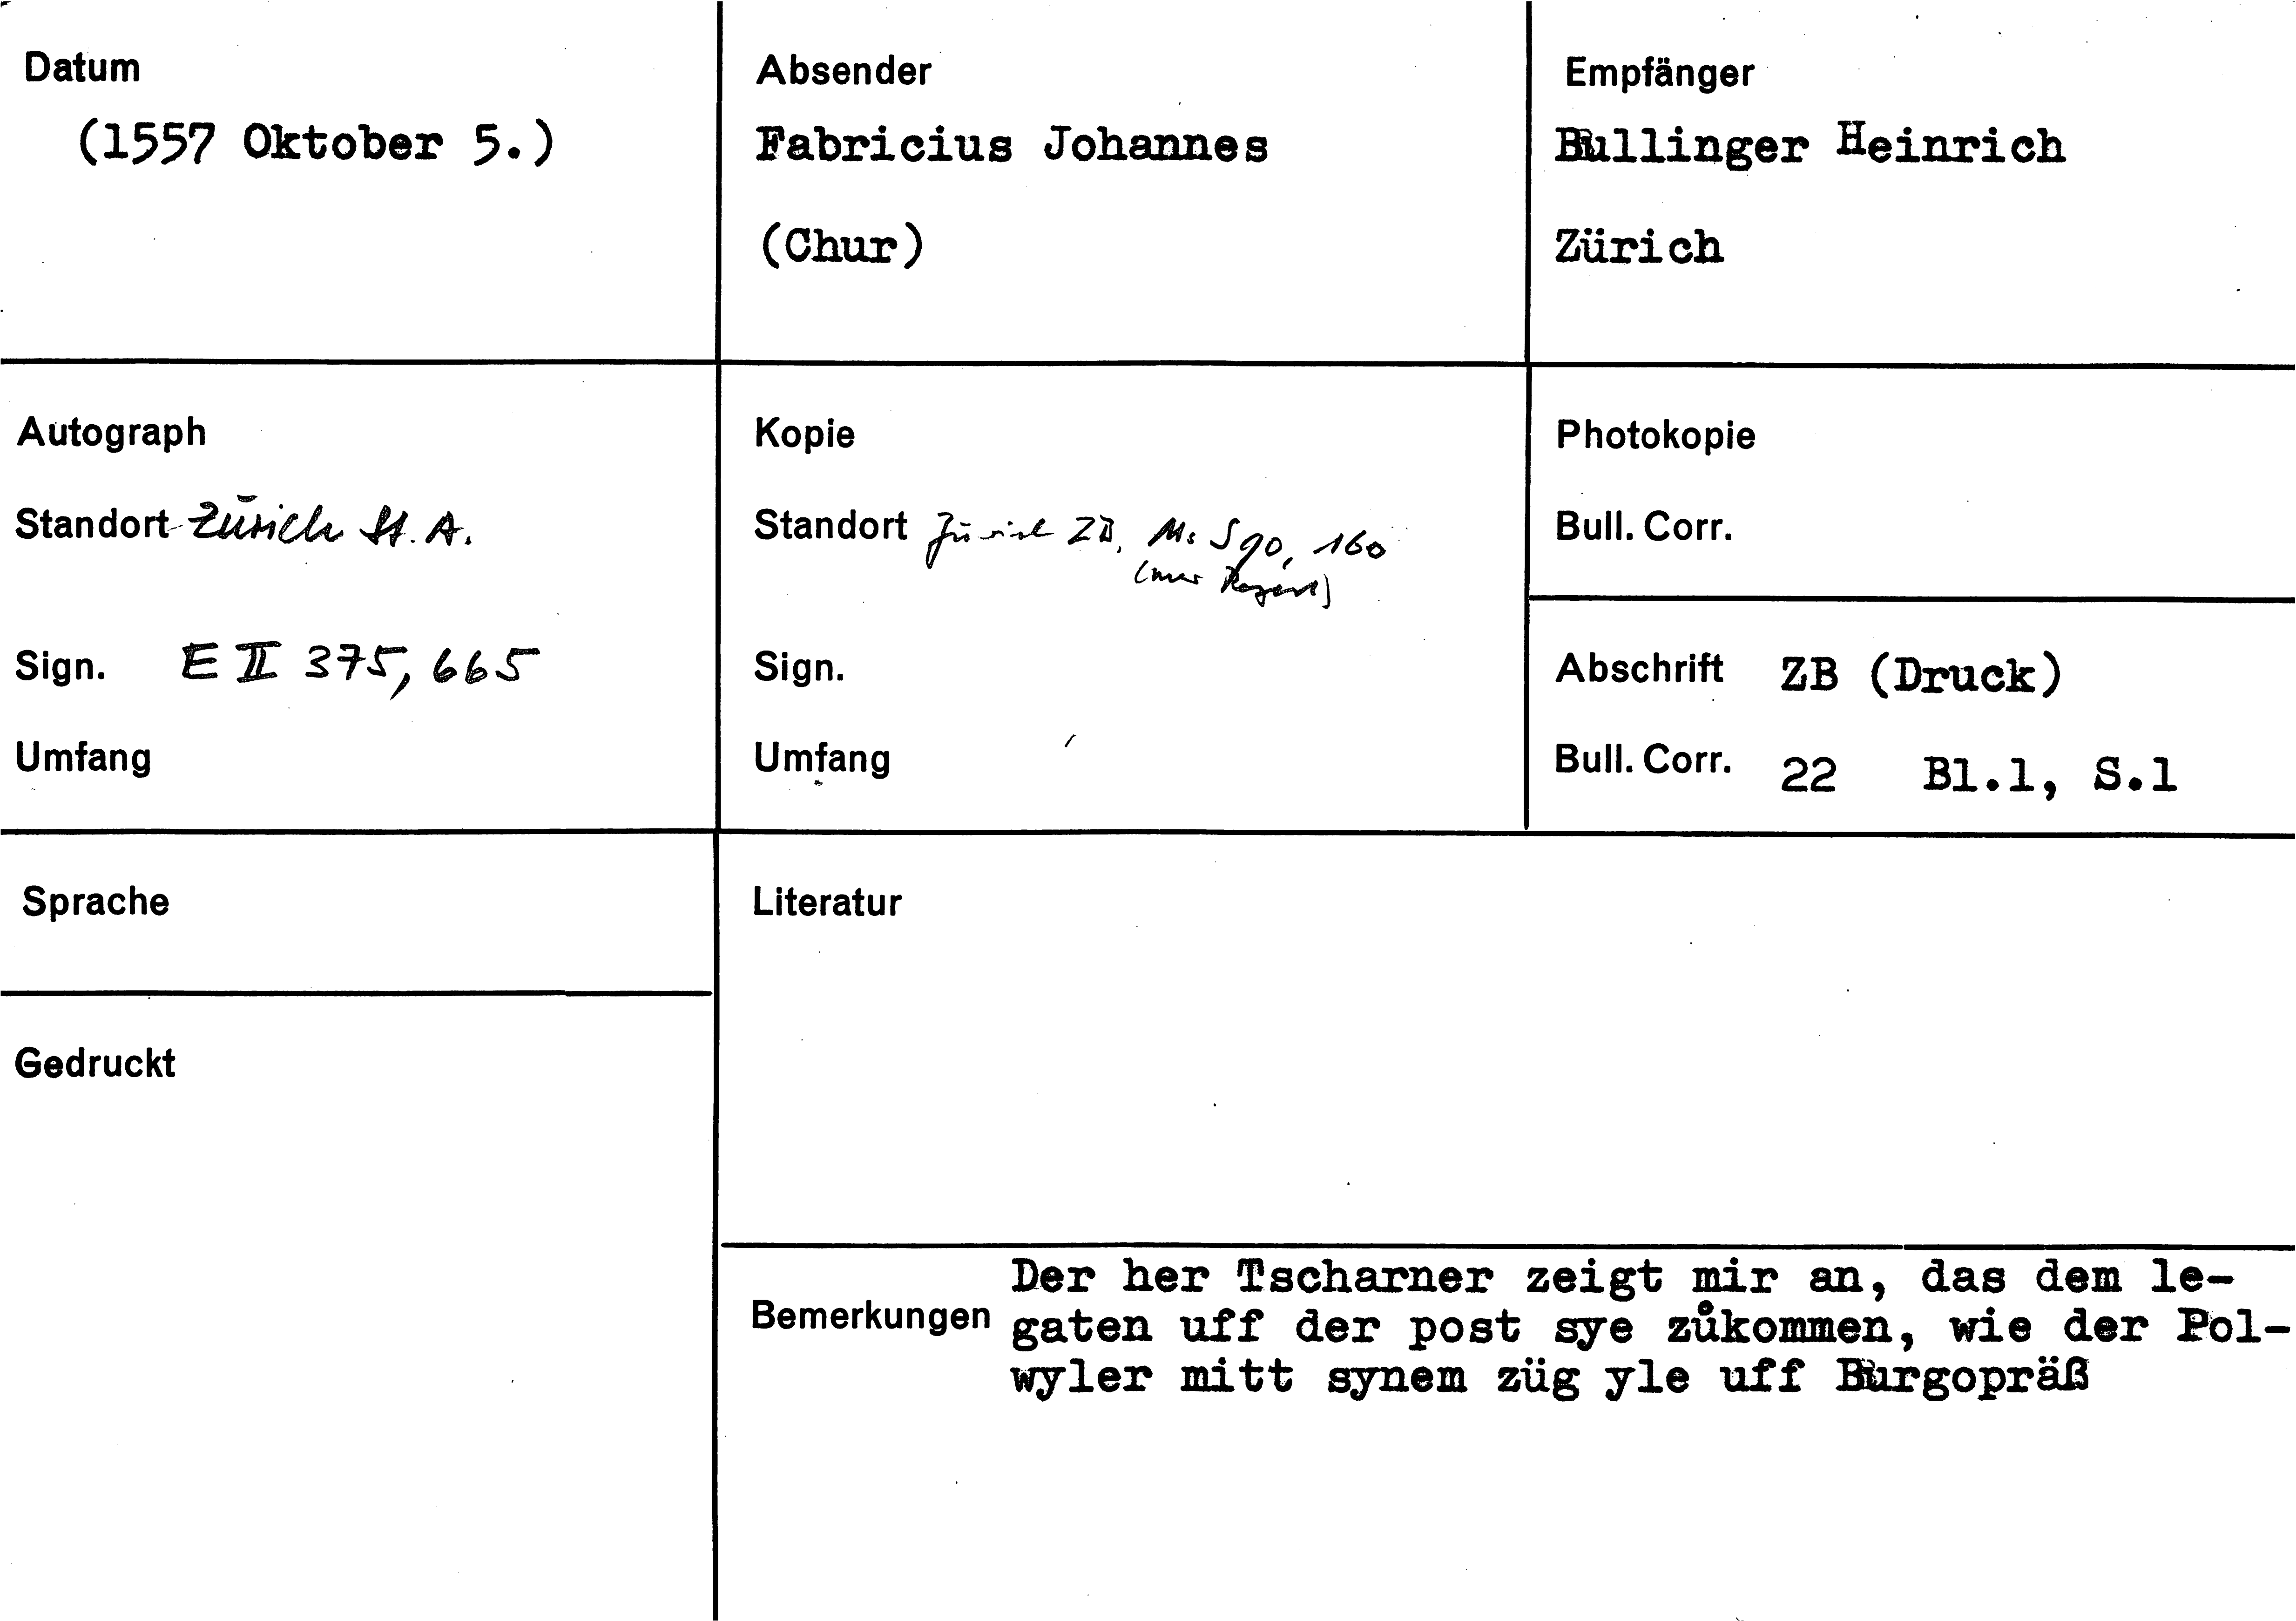 Datum
(1557 Oktober 5.)
Absender
Fabricius Johannes
(Chur)
Empfänger
Bullinger Heinrich
Zürich
Autograph
Standort Zürich St. A.
Sign. E II 375, 665
Umfang
Kopie
Standort Zürich ZB, Ms S 90, 160
(nur Regest)
Sign.
Umfang
Photokopie
Bull. Corr.
Abschrift ZB (Druck)
Bull. Corr. 22 Bl.1, S.1
Sprache
Gedruckt
Literatur
Bemerkungen
Der her Tscharner zeigt mir an, das dem le-
gaten uff der post sye zůkommen, wie der Pol-
wyler mitt synem züg yle uff Burgopräß